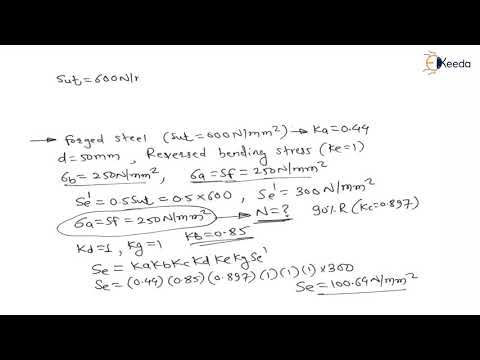 EKeeda
Sut=600N/r
→ Forged steel (Sut=600N/mm²) → Ka=0.44
d=50mm, Reversed bending stress (Ke=1)
σb=250N/mm², σa=Sf=250N/mm²
Se'=0.5Sut=0.5×600, Se'=300N/mm²
σa=Sf=250N/mm² → N=? 90%R (Kc=0.897)
Kd=1, Kg=1 Kb=0.85
Se=KaKbKcKdKeKgSe'
Se=(0.44)(0.85)(0.897)(1)(1)(1)×300
Se=100.64N/mm²